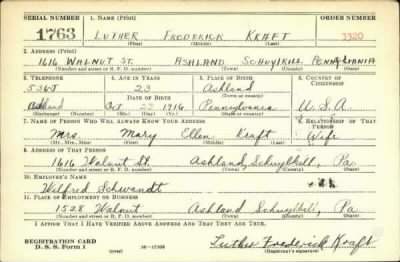 SERIAL NUMBER 1. NAME (Print) ORDER NUMBER
1763 LUTHER FREDERICK KRAFT 3320
(First) (Middle) (Last)
2. ADDRESS (Print)
1616 WALNUT ST. ASHLAND SCHUYLKILL PENNSYLVANIA
(Number and street or R. F. D. number) (Town) (County) (State)
3. TELEPHONE 4. AGE IN YEARS 5. PLACE OF BIRTH 6. COUNTRY OF CITIZENSHIP
536-J 23 Ashland
DATE OF BIRTH (Town or county)
Ashland Oct 22 1916 Pennsylvania U.S.A.
(Exchange) (Number) (Mo.) (Day) (Yr.) (State or country)
7. NAME OF PERSON WHO WILL ALWAYS KNOW YOUR ADDRESS 8. RELATIONSHIP OF THAT PERSON
Mrs. Mary Ellen Kraft Wife
(Mr., Mrs., Miss) (First) (Middle) (Last)
9. ADDRESS OF THAT PERSON
1616 Walnut St. Ashland, Schuylkill, Pa.
(Number and street or R. F. D. number) (Town) (County) (State)
10. EMPLOYER'S NAME
Wilfred Schwandt
11. PLACE OF EMPLOYMENT OR BUSINESS
1528 Walnut Ashland Schuylkill, Pa
(Number and street or R. F. D. number) (Town) (County) (State)
I AFFIRM THAT I HAVE VERIFIED ABOVE ANSWERS AND THAT THEY ARE TRUE.
REGISTRATION CARD
D. S. S. Form 1 (over) 16—17105 Luther Frederick Kraft
(Registrant's signature)